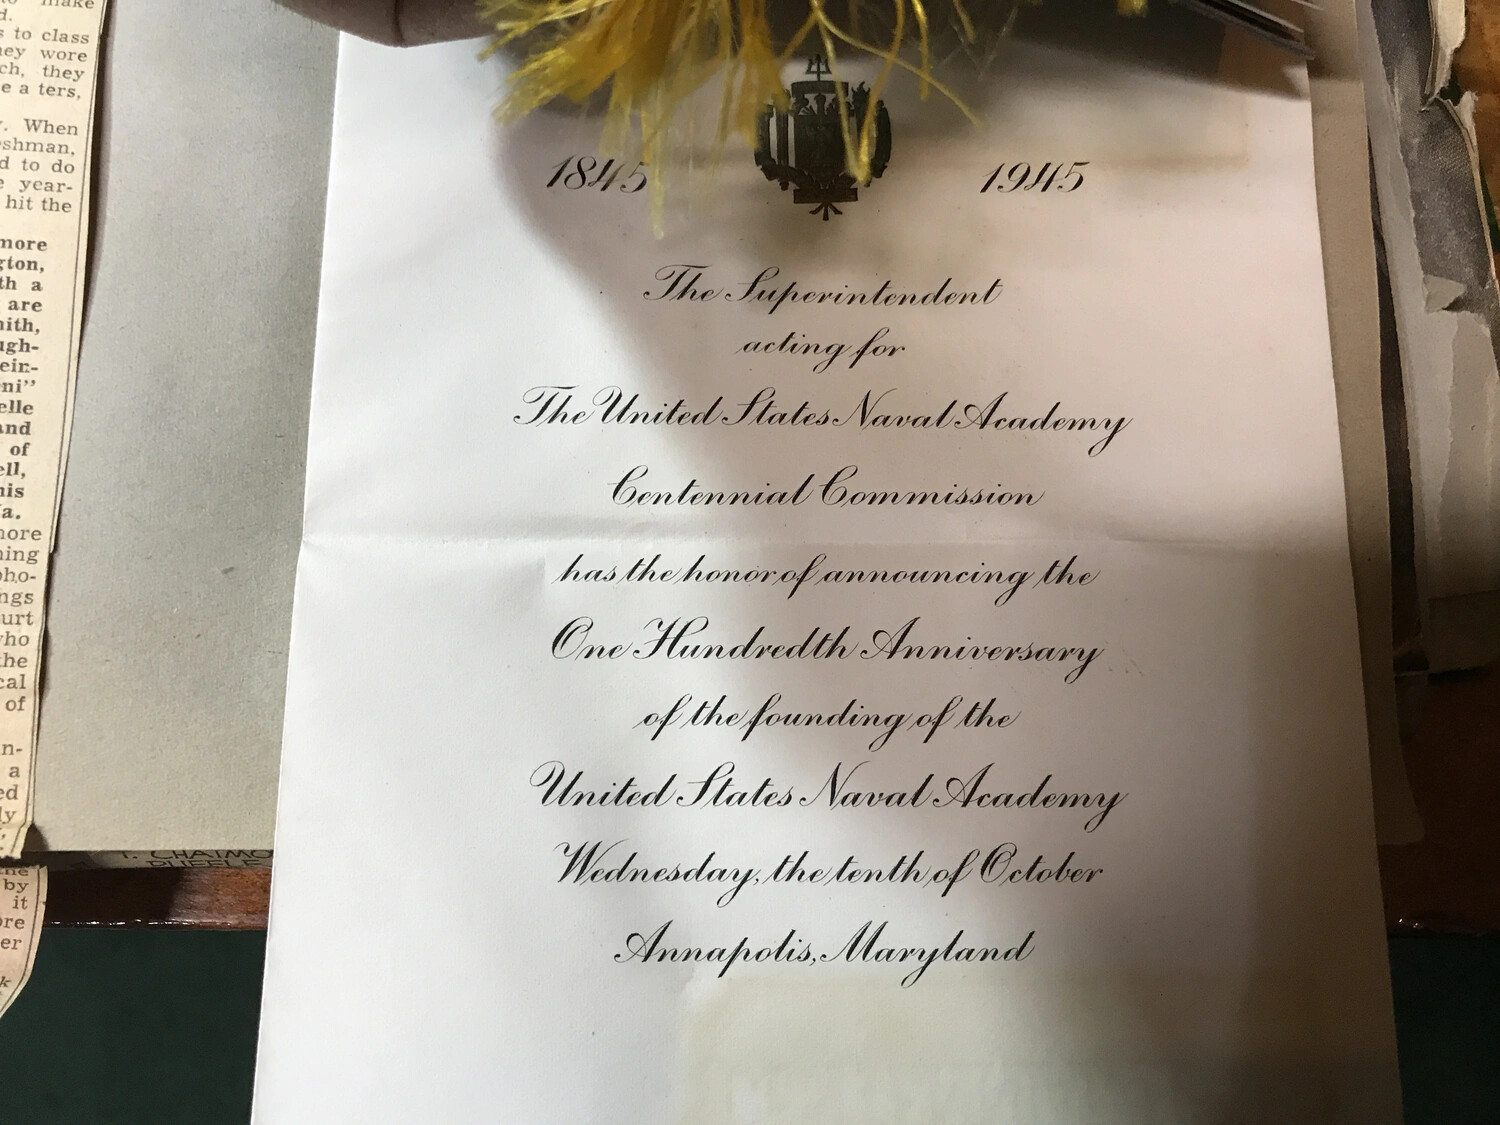 to make
d.
s to class
hey wore
ch, they
e a ters,
. When
shman,
d to do
e year-
hit the
more
gton,
th a
are
nith,
ugh-
eir-
ni"
elle
and
of
ell,
his
a.
more
ning
oho-
ngs
urt
who
the
cal
of
n-
a
ed
ly
the
by
it
ore
er
k
1845
1945
The Superintendent
acting for
The United States Naval Academy
Centennial Commission
has the honor of announcing the
One Hundredth Anniversary
of the founding of the
United States Naval Academy
Wednesday, the tenth of October
Annapolis, Maryland